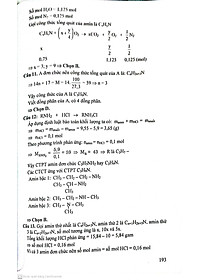 Số mol H₂O = 3,375 mol
Số mol N₂ = 0,375 mol
Gọi công thức tổng quát của amin là CₓHᵧN
CₓHᵧN + (x + y/4) O₂ → xCO₂ + y/2 O₂ + 1/2 N₂
x y/2 1/2
0,75 1,125 0,125 (mol)
⇒ x = 3; y = 9 ⇒ Chọn B.
Câu 11. A đơn chức nên công thức tổng quát của A là
⇒ 14n + 17 = M = 14 · 100/23,7 = 59 ⇒ n = 3
Vậy công thức của A là C₃H₉N.
Viết đồng phân của A, có 4 đồng phân.
⇒ Chọn D.
Câu 12: RNH₂ + HCl → RNH₃Cl
Áp dụng định luật bảo toàn khối lượng ta có:
⇒ = 9,55 – 5,9 = 3,65 (g)
⇒ = 0,1 mol
Theo phương trình phản ứng: = 0,1 mol
⇒ = 5,9/0,1 = 59 ⇒ = 43 ⇒ R là C₃H₇–
Vậy CTPT amin đơn chức C₃H₇NH₂ hay C₃H₉N.
Các CTCT ứng với CTPT C₃H₉N.
Amin bậc 1: CH₃ – CH₂ – CH₂ – NH₂
CH₃ – CH – NH₂
CH₃
Amin bậc 2: CH₃ – CH₂ – NH – CH₃
Amin bậc 3: CH₃ – N – CH₃
CH₃
⇒ Chọn B.
Câu 13. Gọi amin thứ nhất là amin thứ 2 là amin thứ
3 là số mol tương ứng là x, 10x và 5x.
Tổng khối lượng HCl phản ứng = 15,84 – 10 = 5,84 gam
⇒ số mol HCl = 0,16 mol
Vì cả 3 amin đơn chức nên số mol amin = số mol HCl = 0,16 mol
193